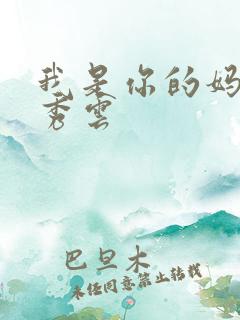 我是你的妈
秀云
巴旦木
未经同意禁止转载